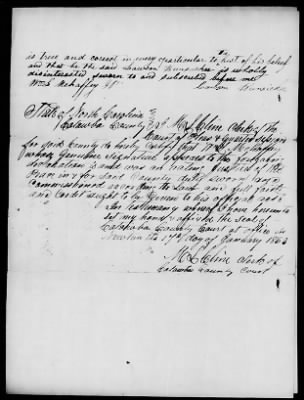 is true and correct in every particular to best of his belief
and that he the said is wholly
disinterested sworn to and subscribed before me
Wm S Mehaffey JP
State of North Carolina
Catawba County I M L Cline Clerk of the
Court of Pleas & Quarter Session
for said County do hereby certify that Wm S Mehaffey
whose Genuine Signature appears to the foregoing
is and was an acting Justice of the
Peace in & for said County duly sworn and
Commissioned according to Law and full faith
and Credit ought to be Given to his official acts
In testimony whereof I have hereunto
set my hand & affixed the seal of
Catawba County Court at office in
Newton the 17th day of January 1863
M L Cline Clerk of
Catawba County Court